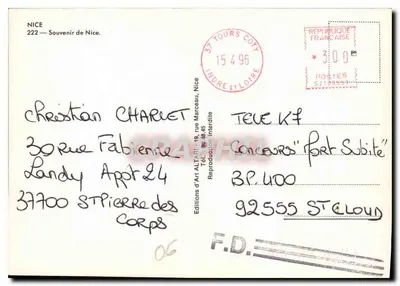 NICE
222 — Souvenir de Nice.
37 TOURS COTY
15 4 96
INDRE ET LOIRE
REPUBLIQUE
FRANCAISE
300
POSTES
Christian CHARLET
30 Rue Fabienne
Landy Appt 24
37700 St Pierre des
Corps
06
Editions d'Art rue Marceau, Nice
interdite
TELE K7
Concours "Mort Subite"
BP. 400
92555 St CLOUD
F.D.